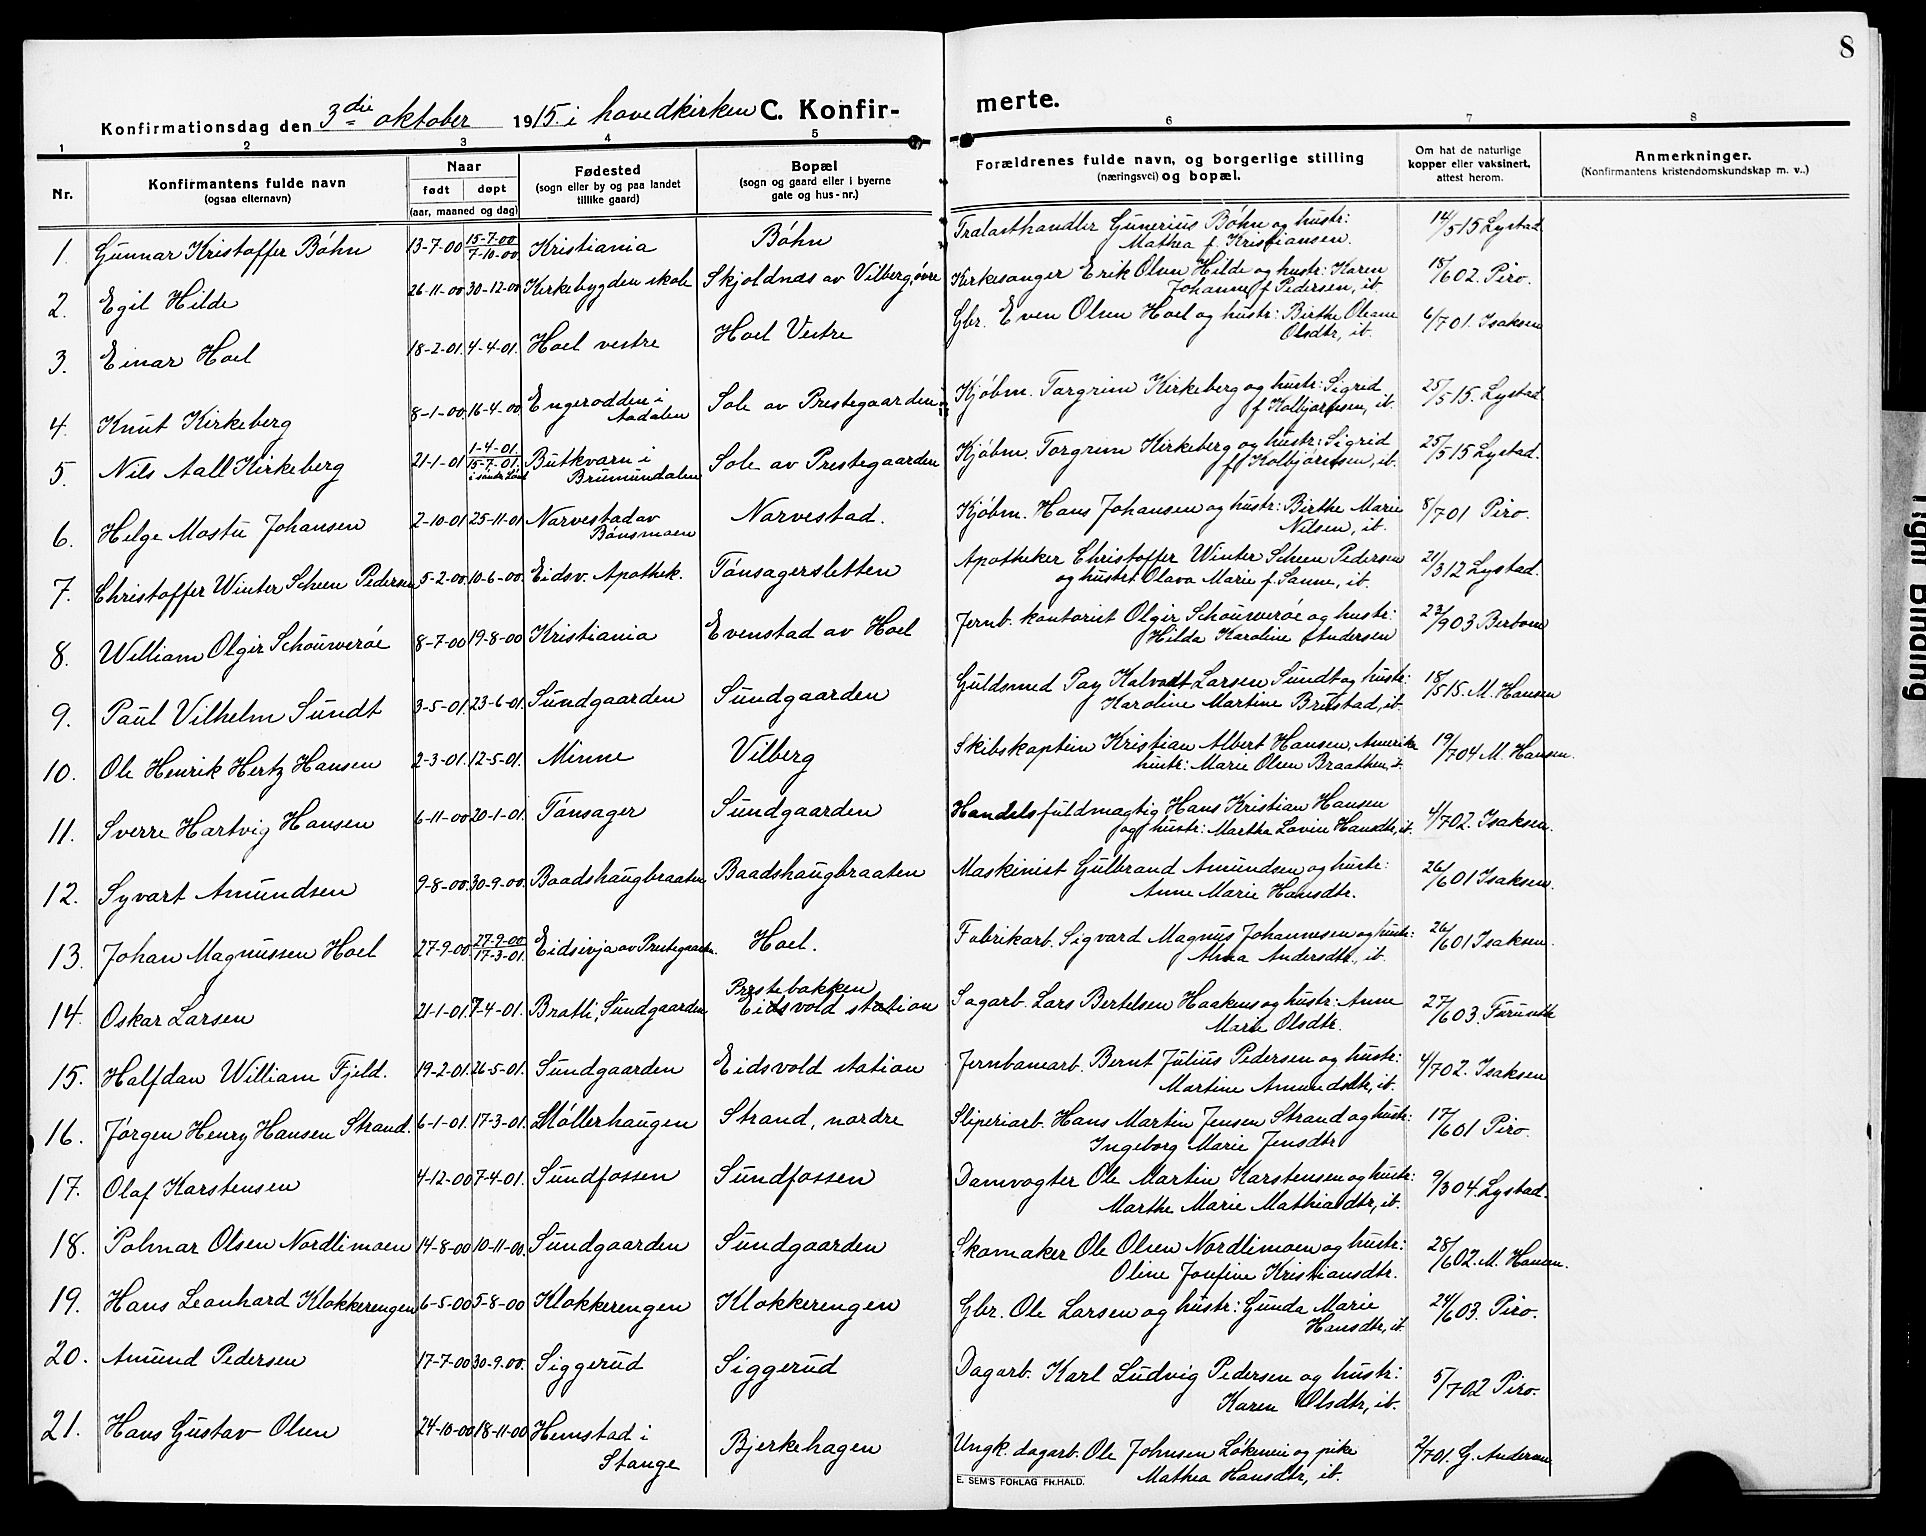 8
Konfirmationsdag den 3die oktober 1915. i hovedkirken C. Konfir-
merte.
1 2 3 4 5 6 7 8
Nr.
Konfirmantens fulde navn
(ogsaa etternavn)
Naar
født døpt
(aar, maaned og dag)
Fødested
(sogn eller by og paa landet
tillike gaard)
Bopæl
(sogn og gaard eller i byerne
gate og hus-nr.)
Forældrenes fulde navn, og borgerlige stilling
(næringsvei) og bopæl.
Om hat de naturlige
kopper eller vaksinert,
attest herom.
Anmerkninger.
(Konfirmantens kristendomskundskap m. v..)
1. Gunnar Kristoffer Bøhn 13-7-00 15-7-00 7-10-00 Kristiania Bøhn Tralasthandler Gunerius Bøhn og hustr: 14/5 15 Lystad
Mathea f. Kristiansen.
2. Egil Hilde 26-11-00 30-12-00 Kirkebygden skole Skjoldnæs av Vilberg, øvre Kirkesanger Erik Olsen Hilde og hustr: Karen 18/6 02. Piro.
Johanne f. Pedersen, ib.
3. Einar Hoel 18-2-01. 4-4-01. Hoel vestre Hoel Vestre Gbr. Even Olsen Hoel og hustr: Birthe Oleane 6/7 01. Isaksen
Olsdtr, ib.
4. Knut Kirkeberg 8-1-00 16-4-00 Engerodden i Sole av Prestegaarden Kjøbm. Torgrim Kirkeberg og hustr: Sigrid 25/5 15. Lystad
Aadalen f. Kolbjørnsen, ib.
5. Nils Aall Kirkeberg 21-1-01 1-4-01. 15-7-01. Butkvarn i Sole av Prestegaarden Kjøbm. Torgrim Kirkeberg og hustr: Sigrid 25/5 15 Lystad.
Brumundalen f. Kolbjørnsen, ib.
6. Helge Mostu Johansen 2-10-01 25-11-01 Narvestad av Narvestad. Kjøbm. Hans Johansen og hustr: Birthe Marie 8/7 01 Piro.
Bønsmoen Nilsen, ib.
7. Christoffer Winter Scheen Pedersen 5-2-00. 10-6-00. Eidsv. Apothek. Tønsagersletten Apotheker Christoffer Winter Scheen Pedersen 21/3 12 Lystad.
og hustr. Olava Marie f. Sanne, ib.
8. William Olgir Schouwerøe 8-7-00 19-8-00 Kristiania Evenstad av Hoel Jernb. kontorist Olgir Schouwerøe og hustr: 23/9 03
Hilda Karoline f. Andersen
9. Paul Vilhelm Sundt 3-5-01. 23-6-01. Sundgaarden Sundgaarden Guldsmed Pay Larsen Sundt og hustr: 18/5 15. M. Hansen
Karoline Martine Brustad, ib.
10. Ole Henrik Hertz Hansen 2-3-01. 12-5-01. Minne Vilberg Skibskaptein Kristian Albert Hansen, Amerika 19/7 04 M. Hansen.
hustr: Marie Olsen Braathen, ib.
11. Sverre Hartvig Hansen 6-11-00 20-1-01. Tønsager Sundgaarden Handelsfuldmægtig Hans Kristian Hansen 4/7 02. Isaksen.
og hustr: Martha Lovise Hansdtr, ib.
12. Syvart Amundsen 9-8-00 30-9-00. Baadshaugbraaten Baadshaugbraaten Maskinist Gulbrand Amundsen og hustr: 26/6 01 Isaksen.
Anne Marie Hansdtr.
13. Johan Magnussen Hoel 27-9-00 27-9-00 17-3-01. Eidsivja av Prestegaarden. Hoel. Fabrikarb. Sigvard Magnus Johannesen og hustr: 26/6 01 Isaksen.
Alma Andersdtr, ib.
14. Oskar Larsen 21-1-01. 7-4-01. Bratli, Sundgaarden Prestebakken Eidsvold station Sagarb. Lars Bertelsen Haakens og hustr: Anne 27/6 03. Furuseth
Marie Olsdtr.
15. Halfdan William Fjeld. 19-2-01. 26-5-01. Sundgaarden Eidsvold station Jernbanearb. Bernt Julius Pedersen og hustr: 4/7 02. Isaksen
Martine Amundsdtr, ib.
16. Jørgen Henry Hansen Strand. 6-1-01. 17-3-01. Møllerhaugen Strand, nordre Sliperiarb. Hans Martin Jensen Strand og hustr: 17/6 01 Piro.
Ingeborg Marie Jensdtr
17. Olaf Karstensen 4-12-00 7-4-01. Sundfossen Sundfossen Damvogter Ole Martin Karstensen og hustr: 9/3 04. Lystad.
Marthe Marie Mathiasdtr, ib.
18. Polmar Olsen Nordlimoen 14-8-00 10-11-00. Sundgaarden Sundgaarden Skomaker Ole Olsen Nordlimoen og hustr: 28/6 02. M. Hansen.
Oline Josefine Kristiansdtr.
19. Hans Leonhard Klokkerengen 6-5-00 5-8-00 Klokkerengen Klokkerengen Gbr. Ole Larsen og hustr: Gunda Marie 24/6 03. Piro.
Hansdtr, ib.
20. Amund Pedersen 17-7-00 30-9-00. Siggerud Siggerud Dagarb. Karl Ludvig Pedersen og hustr: 5/7 02 Piro.
Karen Olsdtr, ib.
21. Hans Gustav Olsen 24-10-00 18-11-00 Hemstad i Bjerkehagen Ungk. dagarb. Ole Johnsen Løkenei og pike 2/7 01. G. Andersen
Stange Mathea Hansdtr, ib.
E. SEM'S FORLAG FR.HALD.
Tight Binding